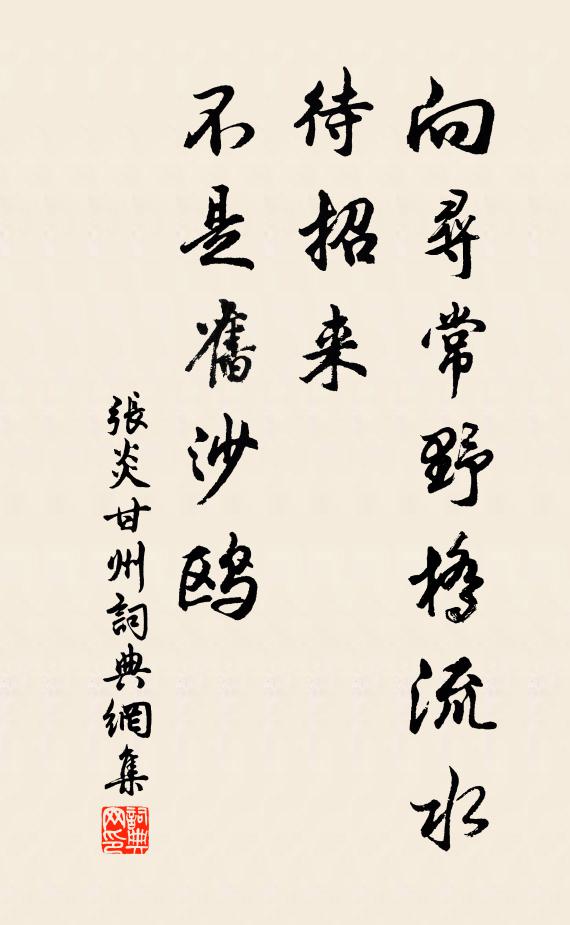 向尋常野橋流水
待招来
不是舊沙鷗
張炎甘州詞典網集
詞典网印